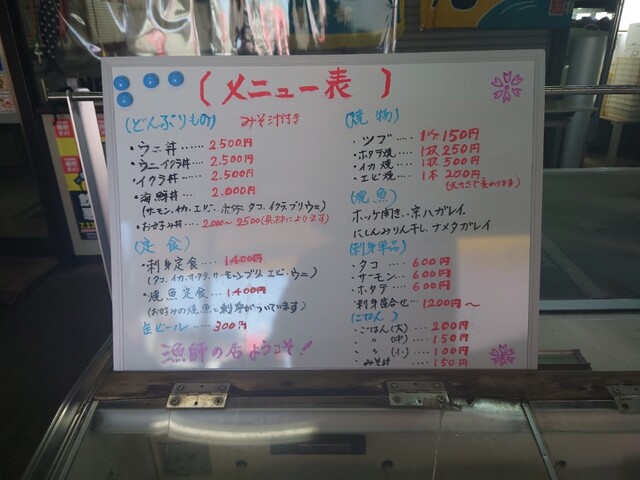 (メニュー表)
(どんぶりもの) みそ汁付き
・ウニ丼……2500円
・ウニイクラ丼…2.500円
・イクラ丼……2.500円
・海鮮丼……2.000円
(サーモン、イカ、エビ、ホタテ、タコ、イクラ、ブリ、ウニ)
・お好み丼…2.000〜2500(具材によります)
(定食)
・刺身定食……1400円
(タコ、イカ、ホタテ、サーモン、ブリ、エビ、ウニ)
・焼魚定食……1400円
(お好みの焼魚と刺身がついています)
缶ビール……300円
漁師の店ようこそ!
(焼物)
・ツブ……1ケ150円
・ホタテ焼…1枚250円
・イカ焼……1枚500円
・エビ焼……1本200円
(大きさで変わります)
(焼魚)
ホッケ開き、宗八ガレイ、
にしんみりん干し、ナメタガレイ
(刺身単品)
・タコ……600円
・サーモン…600円
・ホタテ……600円
・刺身盛合せ…1200円〜
(ごはん)
・ごはん(大)……200円
・〃(中)……150円
・〃(小)……100円
・みそ汁……150円